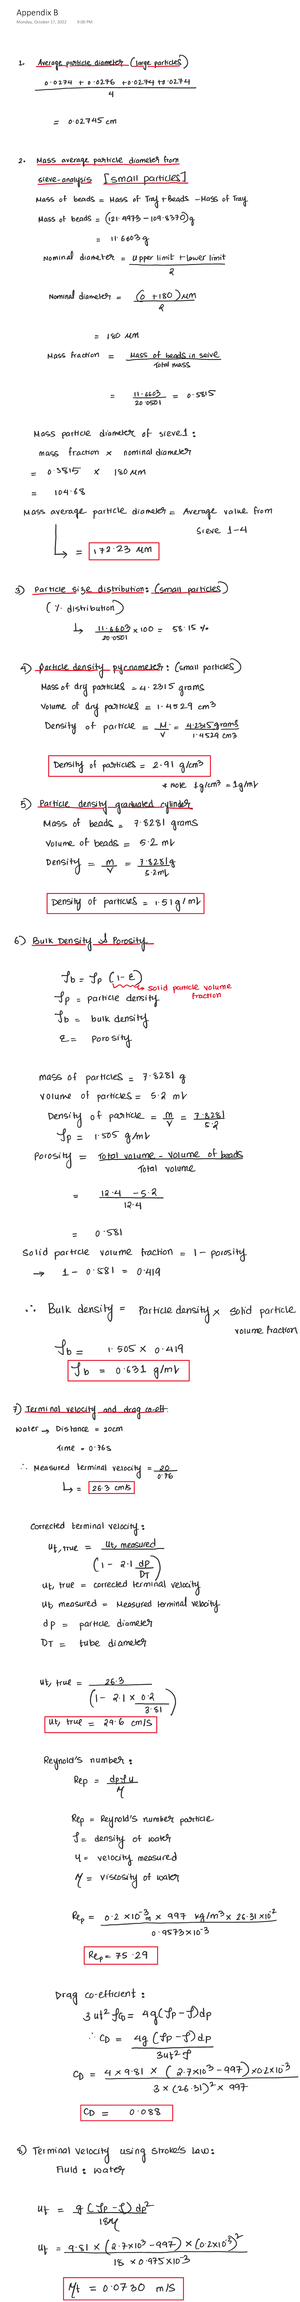 Appendix B
Monday, October 17, 2022 9:00 PM
1. Average particle diameter (large particles)
0.0274 + 0.0276 + 0.0274 + 0.0274
4
= 0.02745 cm
2. Mass average particle diameter from
sieve-analysis [small particles]
Mass of beads = Mass of Tray + Beads - Mass of Tray
Mass of beads = (121.4973 - 109.8370)g
= 11.6603 g
Nominal diameter = upper limit + lower limit
2
Nominal diameter = (0 + 180) μm
2
= 180 μm
Mass fraction = Mass of beads in seive
Total mass
= 11.6603 = 0.5815
20.0501
Mass particle diameter of sieve 1 :
mass fraction x nominal diameter
= 0.5815 x 180 μm
= 104.68
Mass average particle diameter = Average value from
Sieve 1-4
= 172.23 μm
3) Particle size distribution: (small particles)
(% distribution)
↳ 11.6603 x 100 = 58.15 %
20.0501
4) Particle density pycnometer: (small particles)
Mass of dry particles = 4.2315 grams
Volume of dry particles = 1.4529 cm3
Density of particle = M = 4.2315 grams
V 1.4529 cm3
Density of particles = 2.91 g/cm3
* note 1g/cm3 = 1g/mL
5) Particle density graduated cylinder
Mass of beads = 7.8281 grams
Volume of beads = 5.2 mL
Density = m = 7.8281g
V 5.2mL
Density of particles = 1.51 g/mL
6) Bulk Density & Porosity
ρb = ρp (1-ε)
→ solid particle volume
fraction
ρp = particle density
ρb = bulk density
ε = Porosity
mass of particles = 7.8281 g
volume of particles = 5.2 mL
Density of particle = m = 7.8281
V 5.2
ρp = 1.505 g/mL
Porosity = Total volume - Volume of beads
Total volume
= 12.4 - 5.2
12.4
= 0.581
Solid particle volume fraction = 1 - porosity
→ 1 - 0.581 = 0.419
∴ Bulk density = Particle density x solid particle
volume fraction
ρb = 1.505 x 0.419
ρb = 0.631 g/mL
7) Terminal velocity and drag co-eff
Water → Distance = 20cm
Time = 0.76s
∴ Measured terminal velocity = 20
0.76
↳ = 26.3 cm/s
Corrected terminal velocity:
ut, true = ut, measured
(1 - 2.1 dp
DT)
ut, true = corrected terminal velocity
ut, measured = Measured terminal velocity
dp = particle diameter
DT = tube diameter
ut, true = 26.3
(1 - 2.1 x 0.2
3.81)
ut, true = 29.6 cm/s
Reynold's number:
Rep = dpρu
μ
Rep = Reynold's number particle
ρ = density of water
u = velocity measured
μ = viscosity of water
Rep = 0.2 x10-3 m x 997 kg/m3 x 26.31 x10-2
0.9573x10-3
Rep = 75.29
Drag co-efficient:
3ut2 ρCD = 4g(ρp-ρ)dp
∴ CD = 4g(ρp-ρ)dp
3ut2ρ
CD = 4 x 9.81 x (2.7x103 - 997) x0.2x10-3
3 x (26.31)2 x 997
CD = 0.088
8) Terminal velocity using stroke's Law:
Fluid: water
ut = g(ρp-ρ)dp2
18μ
ut = 9.81 x (2.7x103 - 997) x (0.2x10-3)2
18 x 0.975x10-3
Ut = 0.0730 m/s